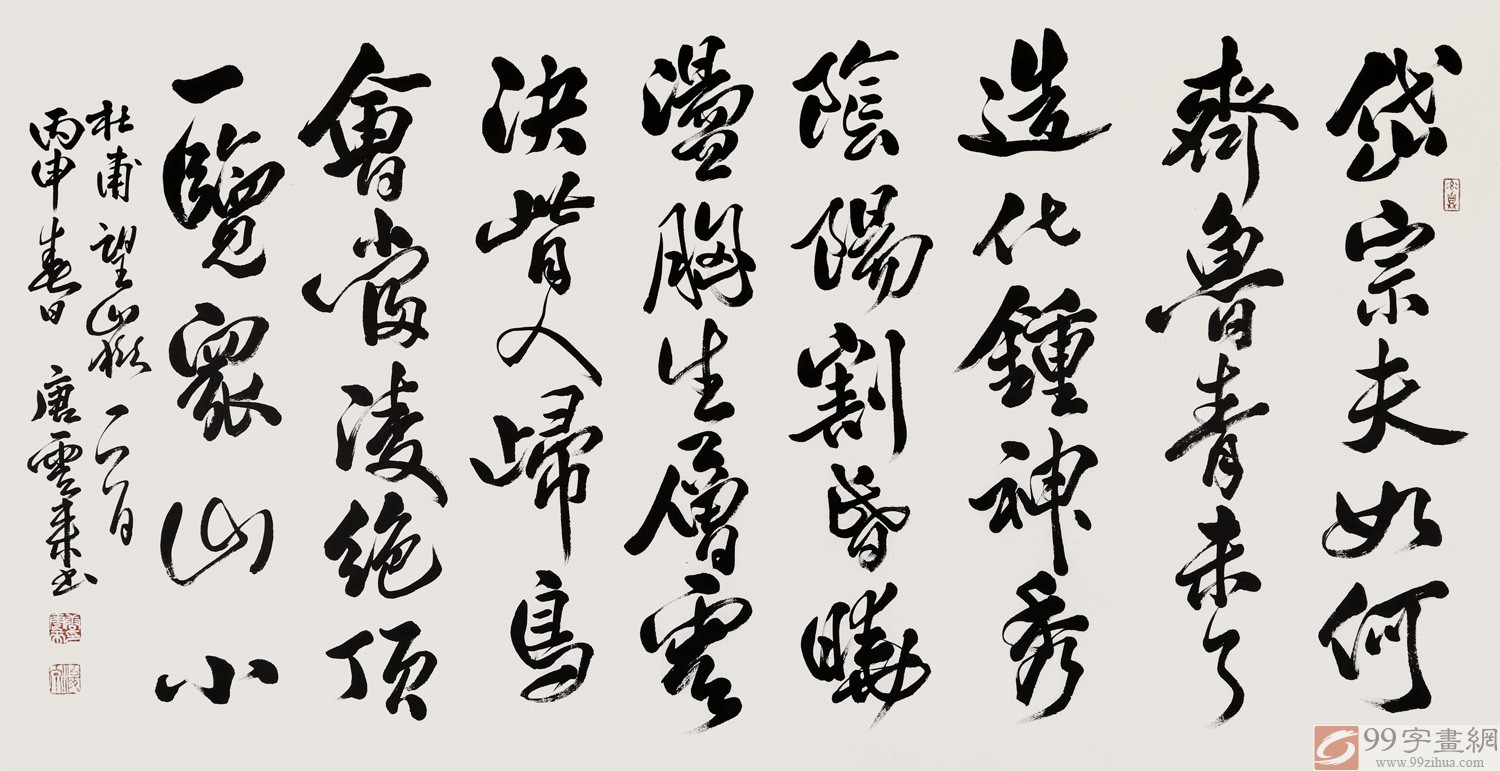 岱宗夫如何
齊魯青未了
造化鍾神秀
陰陽割昏曉
盪胸生層雲
決眥入歸鳥
會當凌絕頂
一覽眾山小
杜甫望嶽一首
丙申春日 唐雲來書
99字畫網
www.99zihua.com